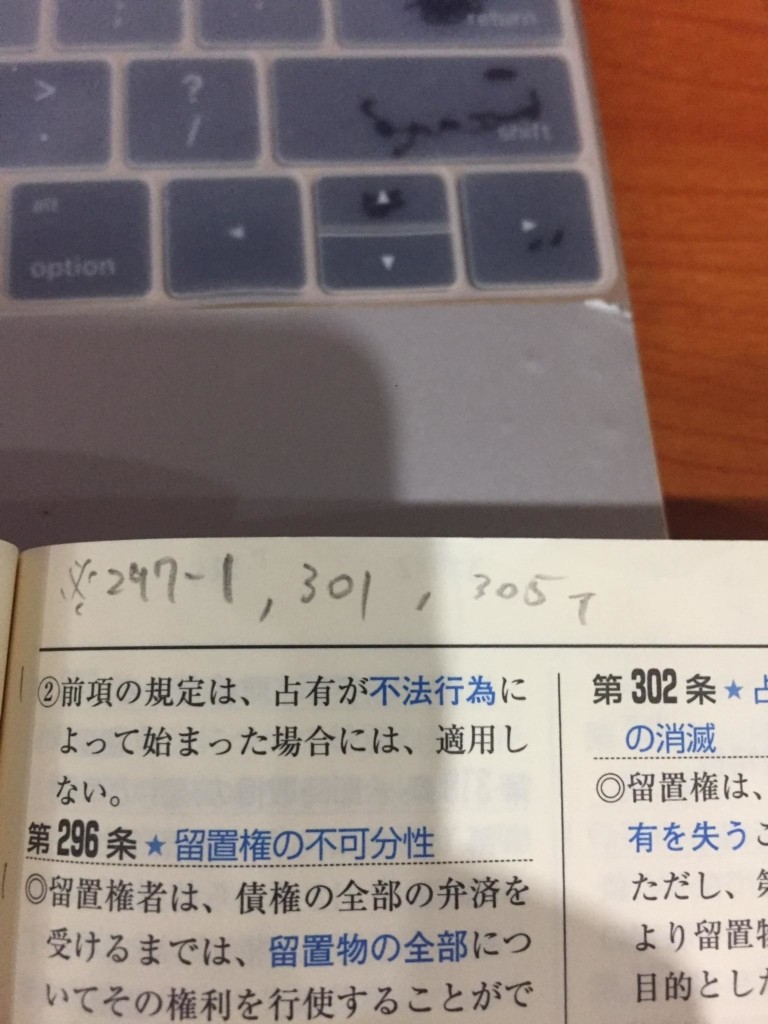 return
>
.
?
/
shift
alt
option
◀
▲
▼
▶
※247-1, 301, 305
②前項の規定は、占有が不法行為に
よって始まった場合には、適用し
ない。
第296条★留置権の不可分性
◎留置権者は、債権の全部の弁済を
受けるまでは、留置物の全部につ
いてその権利を行使することがで
第302条★占
の消滅
◎留置権は、
有を失うこ
ただし、第
より留置物
目的とした